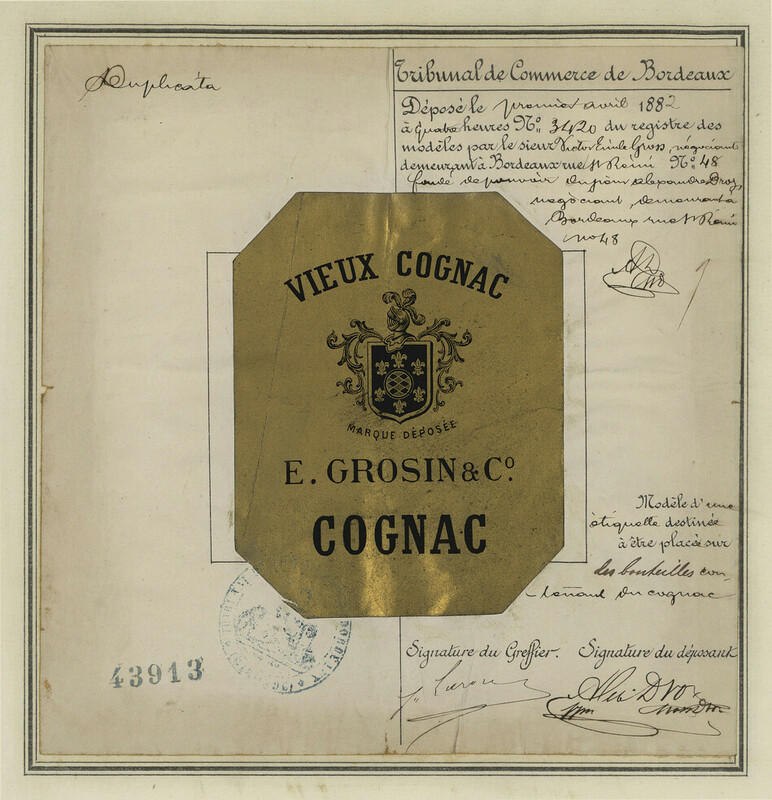 Duplicata
Tribunal de Commerce de Bordeaux
Déposé le premier avril 1882
à quatre heures No. 3420 du registre des
modèles par le sieur Victor Emile Gross, négociant
demeurant à Bordeaux rue St Rémi No. 48
fondé de pouvoir du sieur Alexandre Droz
négociant, demeurant à
Bordeaux rue St Rémi
no 48
VIEUX COGNAC
MARQUE DÉPOSÉE
E. GROSIN & Co.
COGNAC
Modèle d'une
étiquette destinée
à être placée sur
des bouteilles con-
tenant du cognac
Signature du Greffier. Signature du déposant
43913